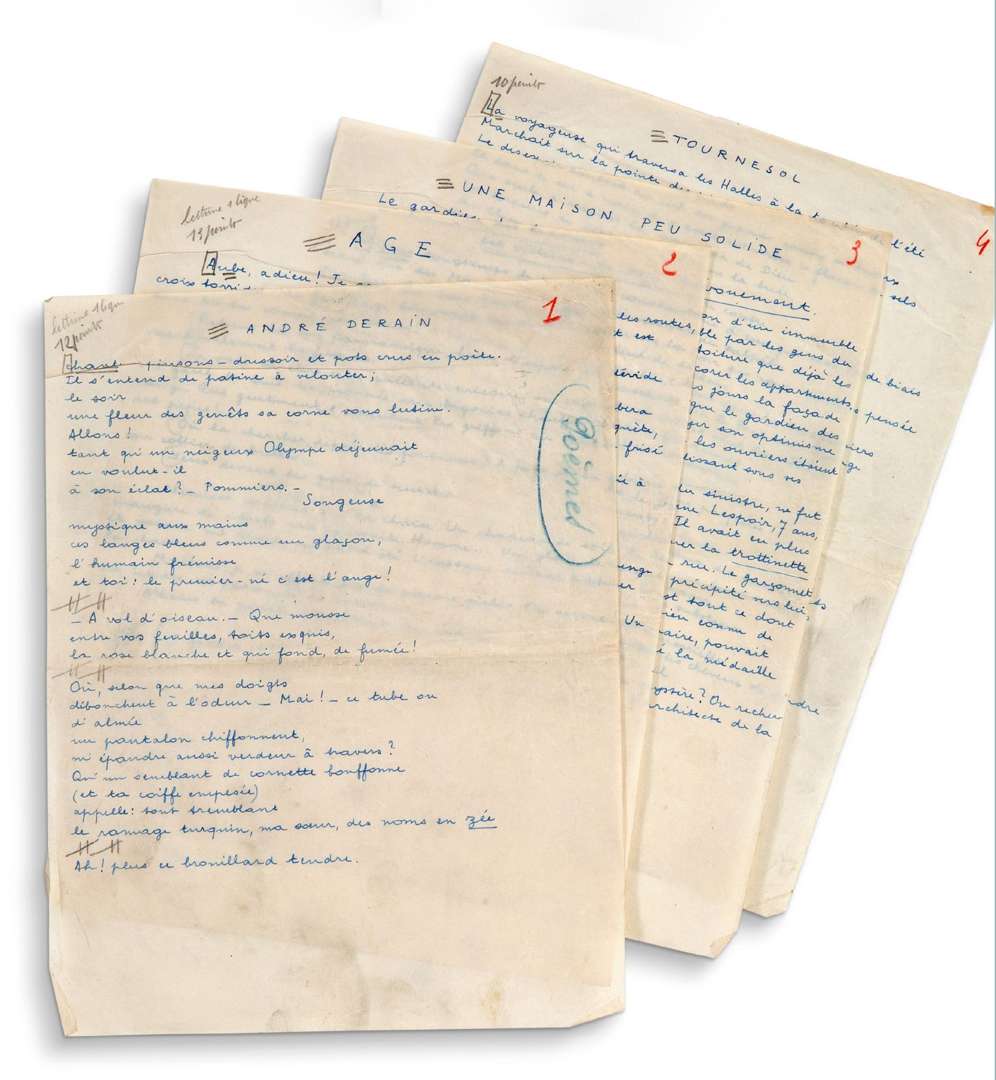 lettrine 1 ligne
12 points
ANDRÉ DERAIN
1
Chant – pinsons – dressoir et pots crus en poète.
Il s'entend de patine à velouter ;
le soir
une fleur des genêts sa corne vous lutine.
Allons !
tant qu'un neigeux Olympe déjeunait
en voulut-il
à son éclat ? – Pommiers. –
Songeuse
mystique aux mains
ces langes bleus comme un glaçon,
l'humain frémisse
et toi : le premier-né c'est l'ange !
– A vol d'oiseau. – Que mousse
entre vos feuilles, toits exquis,
la rose blanche et qui fond, de fumée !
Où, selon que mes doigts
débouchent à l'odeur – Mai ! – ce tube ou
d'almée
un pantalon chiffonnent,
m'épandre aussi verdeur à travers ?
Qu'un semblant de cornette bouffonne
(et ta coiffe empesée)
appelle : tout tremblant
le ramage turquin, ma sœur, des noms en zée
Ah ! plus ce brouillard tendre.
Poèmes
lettrine 1 ligne
13 points
AGE
2
Aube, adieu ! Je
les routes,
est
déride
bera
frisé
Un
UNE MAISON PEU SOLIDE
3
Le gardien
vouement.
on d'un immeuble
ble par les gens du
toiture que déjà les
corer les appartements.
s jours la façade
que le gardien des
ger son optimisme
les ouvriers étaient
lissant sous ses
du sinistre, ne fut
une Lespoir, 7 ans,
Il avait en plus
ner la trottinette
rue. Le garçonnet
précipité vers lui,
st tout ce dont
ien connu de
naire, pouvait
i la médaille
ystère ? On recher
architecte de la
10 points
TOURNESOL
4
La voyageuse qui traversa les Halles à la l'été
Marchait sur la pointe
Le
sels
de biais
pensée